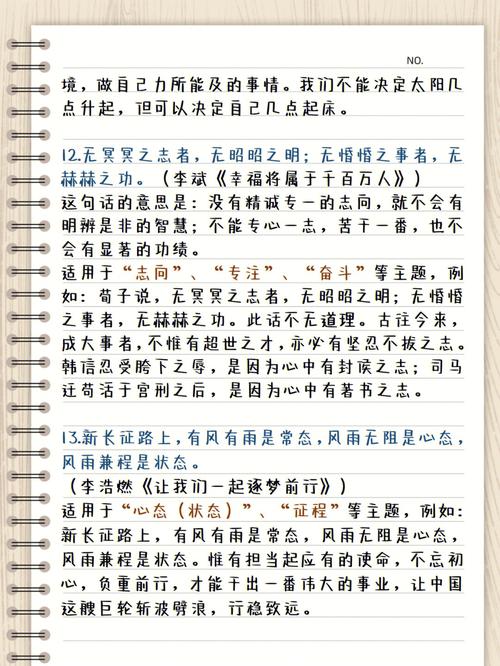 NO.
境，做自己力所能及的事情。我们不能决定太阳几
点升起，但可以决定自己几点起床。
12.无冥冥之志者，无昭昭之明；无惛惛之事者，无
赫赫之功。（李斌《幸福将属于千百万人》）
这句话的意思是：没有精诚专一的志向，就不会有
明辨是非的智慧；不能专心一志，苦干一番，也不
会有显著的功绩。
适用于“志向”、“专注”、“奋斗”等主题，例
如：荀子说，无冥冥之志者，无昭昭之明；无惛惛
之事者，无赫赫之功。此话不无道理。古往今来，
成大事者，不惟有超世之才，亦必有坚忍不拔之志。
韩信忍受胯下之辱，是因为心中有封侯之志；司马
迁苟活于宫刑之后，是因为心中有著书之志。
13.新长征路上，有风有雨是常态，风雨无阻是心态，
风雨兼程是状态。
（李浩燃《让我们一起逐梦前行》）
适用于“心态（状态）”、“征程”等主题，例如：
新长征路上，有风有雨是常态，风雨无阻是心态，
风雨兼程是状态。惟有担当起应有的使命，不忘初
心，负重前行，才能干出一番伟大的事业，让中国
这艘巨轮斩波劈浪，行稳致远。